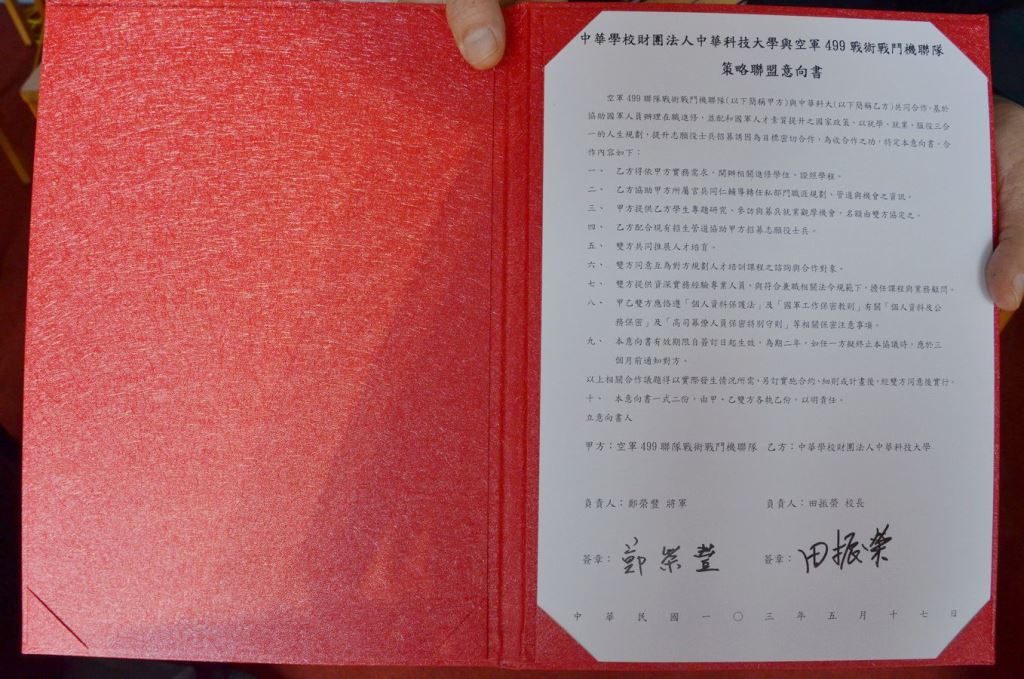 中華學校財團法人中華科技大學與空軍 499 戰術戰鬥機聯隊
策略聯盟意向書
空軍 499 聯隊戰術戰鬥機聯隊(以下簡稱甲方)與中華科大(以下簡稱乙方)共同合作,基於
協助國軍人員辦理在職進修,並配和國軍人才素質提升之國家政策,以就學、就業、服役三合
一的人生規劃,提升志願役士兵招募誘因為目標密切合作,為收合作之功,特定本意向書。合
作內容如下:
一、 乙方得依甲方實務需求,開辦相關進修學位、證照學程。
二、 乙方協助甲方所屬官兵同仁輔導轉任私部門職涯規劃、管道與機會之資訊。
三、 甲方提供乙方學生專題研究、參訪與募兵就業觀摩機會,名額由雙方協定之。
四、 乙方配合現有招生管道協助甲方招募志願役士兵。
五、 雙方共同推展人才培育。
六、 雙方同意互為對方規劃人才培訓課程之諮詢與合作對象。
七、 雙方提供資深實務經驗專業人員,與符合兼職相關法令規範下,擔任課程與業務顧問。
八、 甲乙雙方應恪遵「個人資料保護法」及「國軍工作保密教則」有關「個人資料及公
務保密」及「高司幕僚人員保密特別守則」等相關保密注意事項。
九、 本意向書有效期限自簽訂日起生效,為期二年,如任一方擬終止本協議時,應於三
個月前通知對方。
以上相關合作議題得以實際發生情況所需,另訂實施合約、細則或計畫後,經雙方同意後實行。
十、 本意向書一式二份,由甲、乙雙方各執乙份,以明責任。
立意向書人
甲方:空軍 499 聯隊戰術戰鬥機聯隊 乙方:中華學校財團法人中華科技大學
負責人:鄭榮豐 將軍 負責人:田振榮 校長
簽章: 鄭榮豐 簽章: 田振榮
中 華 民 國 一 〇 三 年 五 月 十 七 日